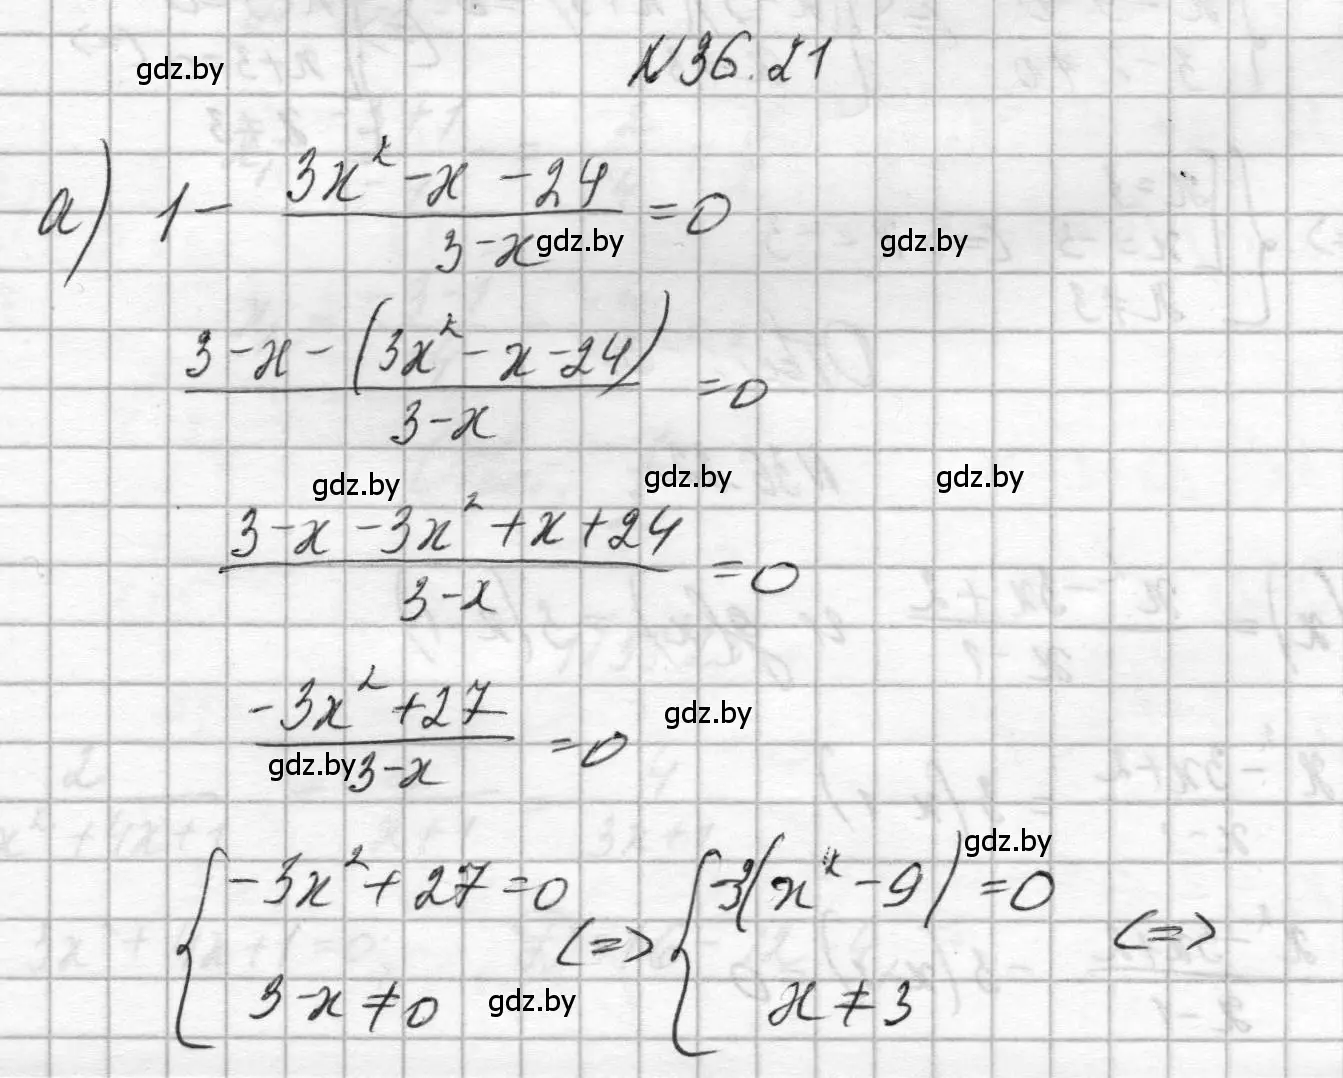 N 36.21
gdz.by
а) 1 - (3x² - x - 24)/(3 - x) = 0
gdz.by gdz.by
(3 - x - (3x² - x - 24))/(3 - x) = 0
gdz.by gdz.by gdz.by
(3 - x - 3x² + x + 24)/(3 - x) = 0
(-3x² + 27)/(3 - x) = 0
gdz.by
gdz.by
gdz.by
{ -3x² + 27 = 0 (=> { -3(x² - 9) = 0 (=>
3 - x ≠ 0 gdz.by x ≠ 3